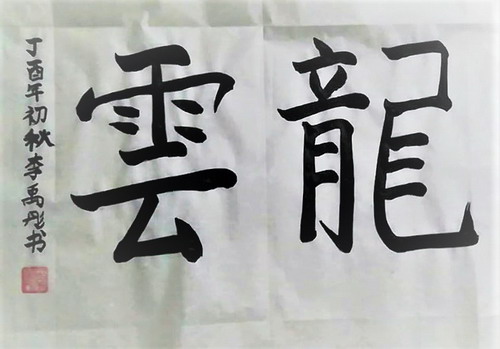 龍雲
丁酉年初秋李禹彤书